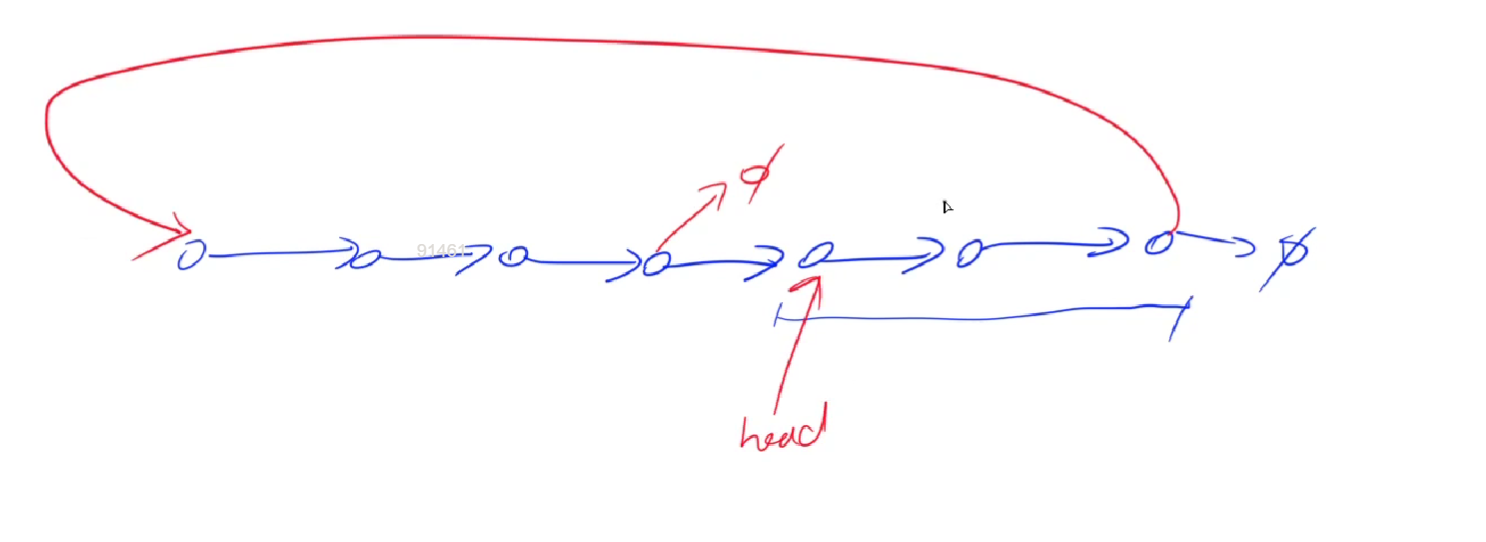 φ
91461
φ
head